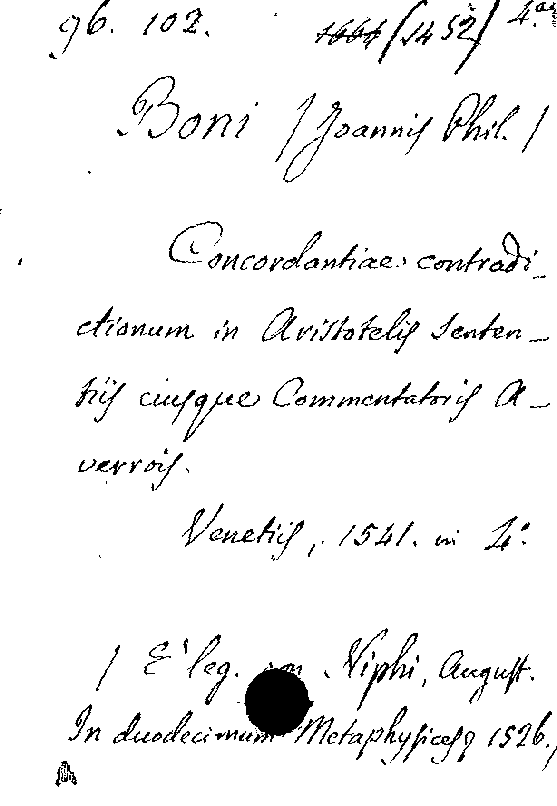 96. 102. (1452) 4.
Boni (Joannis Phil.)
Concordantiae contradi-
ctionum in Aristotelis senten-
tiis eiusque Commentatoris A-
verrois.
Venetiis, 1541. in 4.°
(E' leg. con Niphi, August.
In duodecimum Metaphysices 1526.)